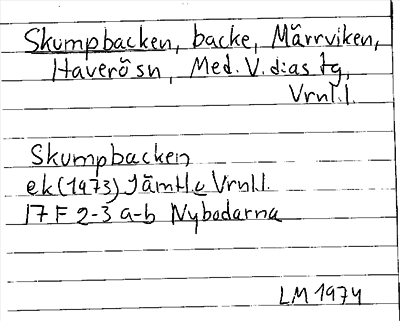 Skumpbacken, backe, Märrviken,
Haverö sn, Med. V. dias tg,
Vrnl.l.
Skumpbacken
ek (1973) Jämtl e Vrnl.l.
17 F 2-3 a-b Nybodarna
LM 1974